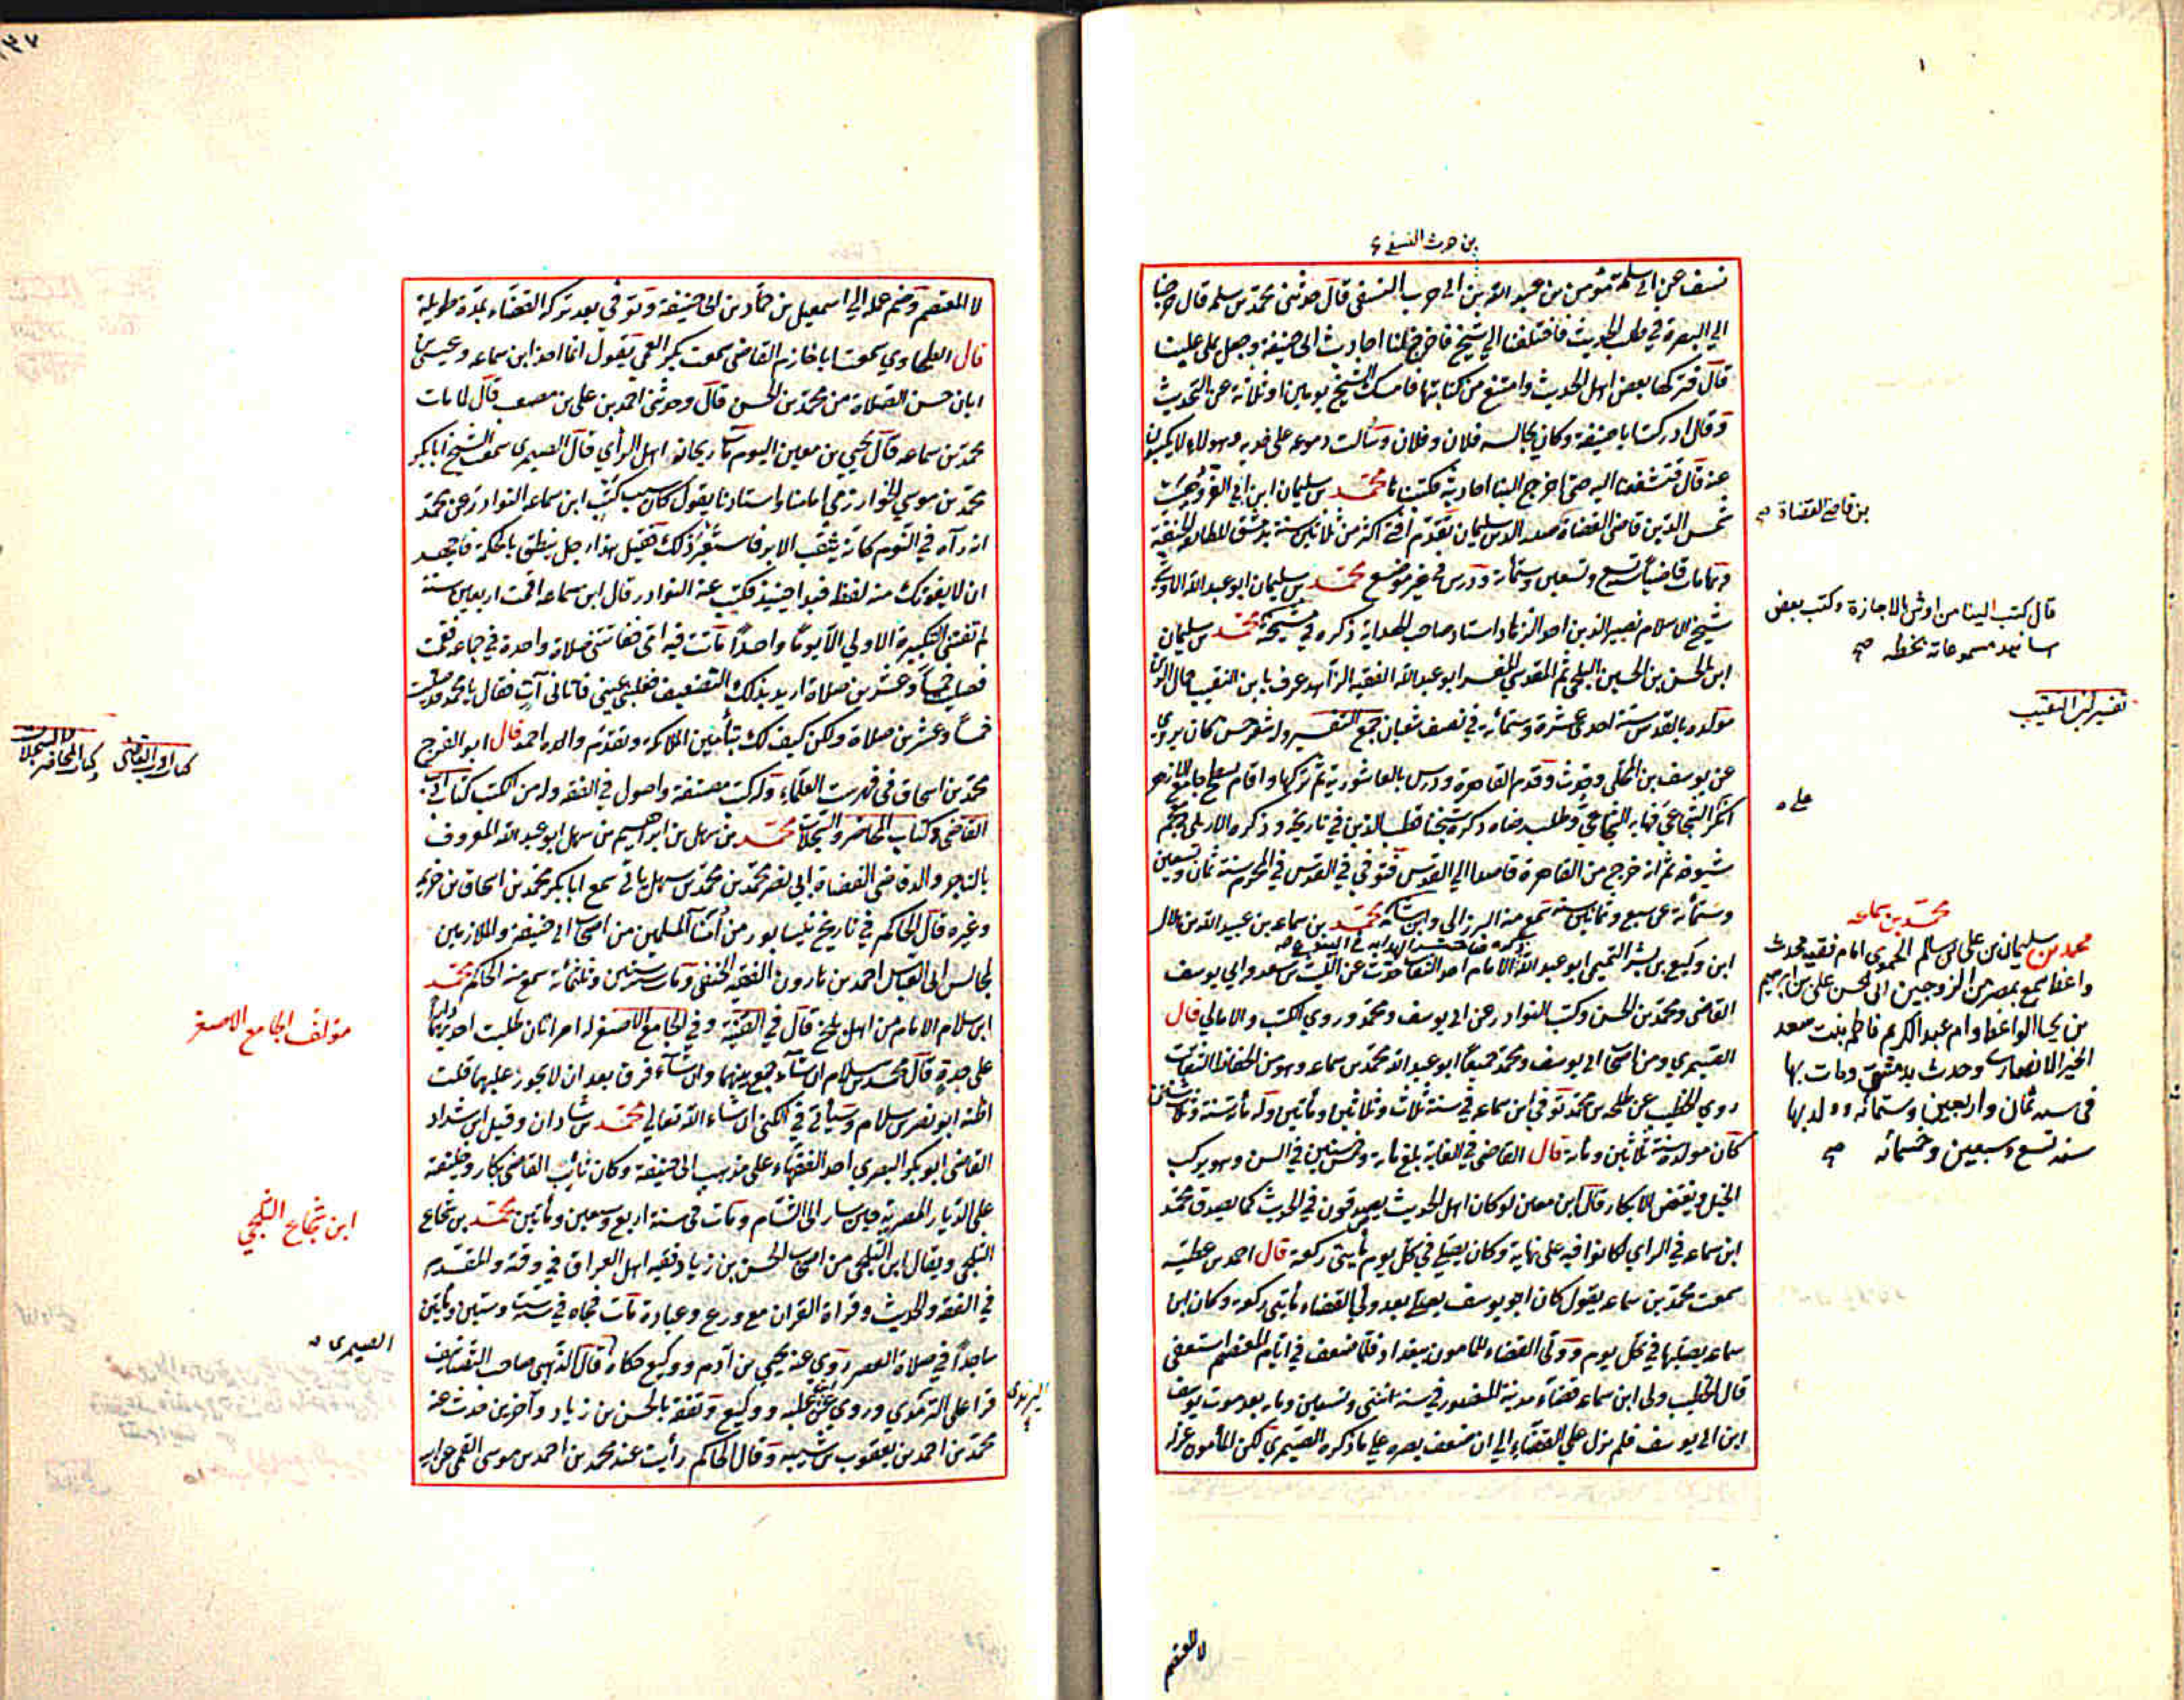 بن حرث النسفي
نسف عن ابي سلمة مؤمن بن عبد الله بن ابي حرب النسفي قال حدثني محمد بن سلمة قال خرجنا
الي البصرة في طلب الحديث فاختلفنا الي شيخ فاخرج لنا احاديث ابي حنيفة وجعل يملي علينا
قال فتركها بعض اهل الحديث وامتنع من كتابتها فامسك الشيخ يومين او ثلاثة عن التحديث
وقال ادركت ابا حنيفة وكان يجالسه فلان وفلان وسالت دموعه على خديه وهولاء لا يكتبون
عنه قال فتشفعنا اليه حتى اخرج الينا احاديثه فكتبناها محمد بن سليمان ابن ابي العز وهيب
شمس الدين قاضي القضاة صدر الدين سليمان تقدم افتى اكثر من ثلاثين سنة بدمشق للطائفة الحنفية
ومات قاضيا سنة تسع وتسعين وستمائة ودرس في غير موضع محمد بن سليمان ابو عبد الله الاوشي
شيخ الاسلام نصير الدين احد الزهاد استاد صاحب الهداية ذكره في مشيخته محمد بن سليمان
ابن الحسن بن الحسين البلخي ثم المقدسي المفسر ابو عبد الله الفقيه الزاهد عرف بابن النقيب جمال الدين
مولده بالقدس سنة احدى عشرة وستمائة في نصف شعبان جمع التفسير وله شعر حسن كان يروي
عن يوسف بن المخلي وحدث وقدم القاهرة ودرس بالعاشورية ثم تركها واقام بسطح جامع الازهر
انكر الشجاعي فهابه الشجاعي وطلب رضاه ذكره شيخنا قطب الدين في تاريخه وذكره الابريلي في معجم
شيوخه ثم انه خرج من القاهرة قاصدا الي القدس فتوفي في القدس في المحرم سنة ثمان وتسعين
وستمائة عن سبع وثمانين سنة سمع منه البرزالي وابن شامة محمد بن سماعه بن عبيد الله بن هلال
ابن وكيع بن بشر التميمي ابو عبد الله الامام احد الثقات حدث عن الليث بن سعد وابي يوسف
القاضي ومحمد بن الحسن وكتب النوادر عن ابي يوسف ومحمد وروى الكتب والامالي قال
الصيمري ومن اصحاب ابي يوسف ومحمد جميعا ابو عبد الله محمد بن سماعه وهو من الحفاظ الثقات
روي الخطيب عن طلحة بن محمد توفي ابن سماعه في سنة ثلاث وثلاثين ومأتين وله مأة سنة وثلاث سنين
كان مولده سنة ثلثين ومأة قال القاضي في الغاية بلغ مأة وخمس سنين في السن وهو يركب
الخيل ويفتض الابكار قال ابن معين لو كان اهل الحديث يصدقون في الحديث كما يصدق محمد
ابن سماعه في الراي لكانوا فيه على نهاية وكان يصلي في كل يوم مأيتي ركعة قال احمد بن عطية
سمعت محمد بن سماعه يقول كان ابو يوسف يصلي بعد ولي القضاء مأيتي ركعة وكان ابن
سماعه يصليها في كل يوم وولي القضاء للمامون ببغداد فلما ضعف في ايام المعتصم استعفى
قال الخطيب ولي ابن سماعه قضاء مدينة المنصور في سنة اثنتي وتسعين ومأة بعد موت يوسف
ابن ابي يوسف فلم يزل علي القضاء الي ان ضعف بصره علي ما ذكره الصيمري لكن المأمون عزله
لا المعتصم
بن قاضي القضاة صح
قال كتب الينا من اوش بالاجازة وكتب بعض
اسانيد مسموعاته بخطه صح
تفسير ابن النقيب
على
محمد بن سماعه
محمد بن سليمان بن علي بن سالم الحموي امام فقيه محدث
واعظ سمع بمصر من الزوجين ابي الحسن علي بن ابرهيم
بن نجا الواعظ وام عبد الكريم فاطمة بنت سعد
الخير الانصاري وحدث بدمشق ومات بها
في سنة ثمان واربعين وستمائة وولد بها
سنة تسع وسبعين وخمسمائه صح
لا المعتصم وضم عمله الي اسمعيل بن حماد بن ابي حنيفة وتوفي بعد تركه القضاء بمدة طويلة
قال الطحاوي سمعت ابا خازم القاضي سمعت بكر العمي يقول انما اخذ ابن سماعه وعيسى بن
ابان حسن الصلاة من محمد بن الحسن قال وحدثني احمد بن علي بن مصعب قال لما مات
محمد بن سماعه قال يحيى بن معين اليوم مات ريحانة اهل الرأي قال الصيمري سمعت الشيخ ابا بكر
محمد بن موسي الخوارزمي امامنا واستادنا يقول كان سبب كتب ابن سماعه النوادر عن محمد
انه رآه في النوم كانه يثقب الابر فاستعبر ذلك فقيل هذا رجل ينطق بالحكمة فاجهد
ان لا يفوتك منه لفظة فبدا حينئذ فكتب عنه النوادر قال ابن سماعه اقمت اربعين سنة
لم تفتني التكبيرة الاولي الا يوما واحدا ماتت فيه امي ففاتتني صلاة واحدة في جماعه فقمت
فصليت خمسا وعشرين صلاة اريد بذلك التضعيف فغلبتني عيني فاتاني آت فقال يا محمد قد صليت
خمسا وعشرين صلاة ولكن كيف لك بتأمين الملائكة وتقدم والده احمد قال ابو الفرج
محمد بن اسحاق في فهرست العلماء وله كتب مصنفة واصول في الفقه وله من الكتب كتاب ادب
القاضي وكتاب المحاضر والسجلات محمد بن سهل بن ابراهيم بن سهل ابو عبد الله المعروف
بالتاجر والد قاضي القضاة ابي نصر محمد بن محمد بن سهل ياتي سمع ابا بكر محمد بن اسحاق بن خزيمة
وغيره قال الحاكم في تاريخ نيسابور من أمناء المسلمين من اصحاب ابي حنيفة والملازمين
لمجالس ابي العباس احمد بن هارون الفقيه الحنفي ومات سنة ستين وثلثمائة سمع منه الحاكم محمد
ابن سلام الامام من اهل بلخ قال في القنية وفي الجامع الاصغر له امراتان طلبت احديهما دارا
على حدة قال محمد بن سلام ان شاء جمع بينهما وان شاء فرق بعد ان لا يجوز عليهما قلت
اظنه ابو نصر بن سلام وسيأتي في الكنى ان شاء الله تعالى محمد بن شاذان وقيل ابن شداد
القاضي ابو بكر البصري احد الفقهاء على مذهب ابي حنيفة وكان نائب القاضي بكار وخليفته
على الديار المصرية حين سار الى الشام ومات في سنة اربع وسبعين ومأتين محمد بن شجاع
الثلجي ويقال ابن الثلجي من اصحاب الحسن بن زياد فقيه اهل العراق في وقته والمقدم
في الفقه والحديث وقراة القران مع ورع وعبادة مات فجاة في سنة ست وستين ومأتين
ساجدا في صلاة العصر روي عنه يحيى بن آدم ووكيع حكاه قال الذهبي صاحب التصانيف
قرا على اليزيدي وروى عن ابن علية ووكيع وتفقه بالحسن بن زياد وآخرين حدث عنه
محمد بن احمد بن يعقوب بن شيبة وقال الحاكم رأيت عند محمد بن احمد بن موسى القمي عن ابيه
كتاب ادب القاضي
وكتاب المحاضر والسجلات
مؤلف الجامع الاصغر
ابن شجاع الثلجي
الصيمري
اليزيدي